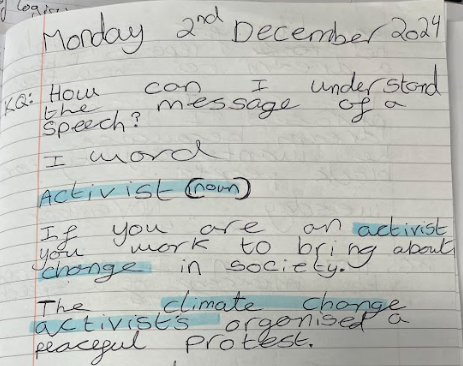 Monday 2nd December 2024
KQ: How can I understand
the message of a
speech?
I word
Activist (noun)
If you are an activist
you work to bring about
change in society.
The climate change
activists organised a
peaceful protest.